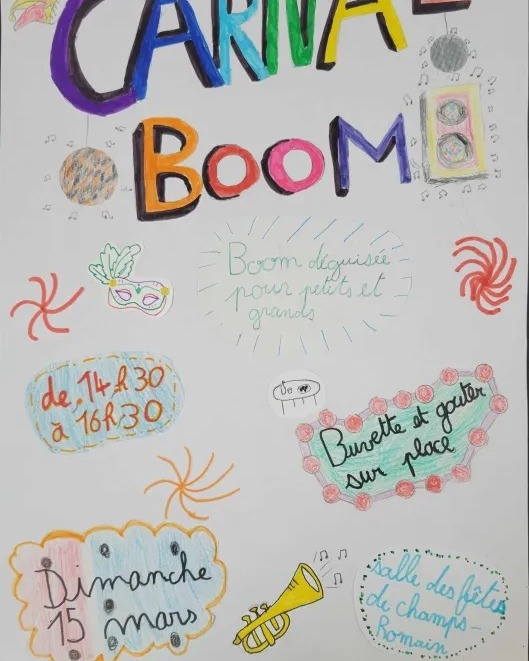 CARNAL
BOOM
Boom déguisée
pour petits et
grands
de 14h30
à 16h30
Buvette et goûter
sur place
Dimanche
15 mars
salle des fêtes
de champs-
Romain